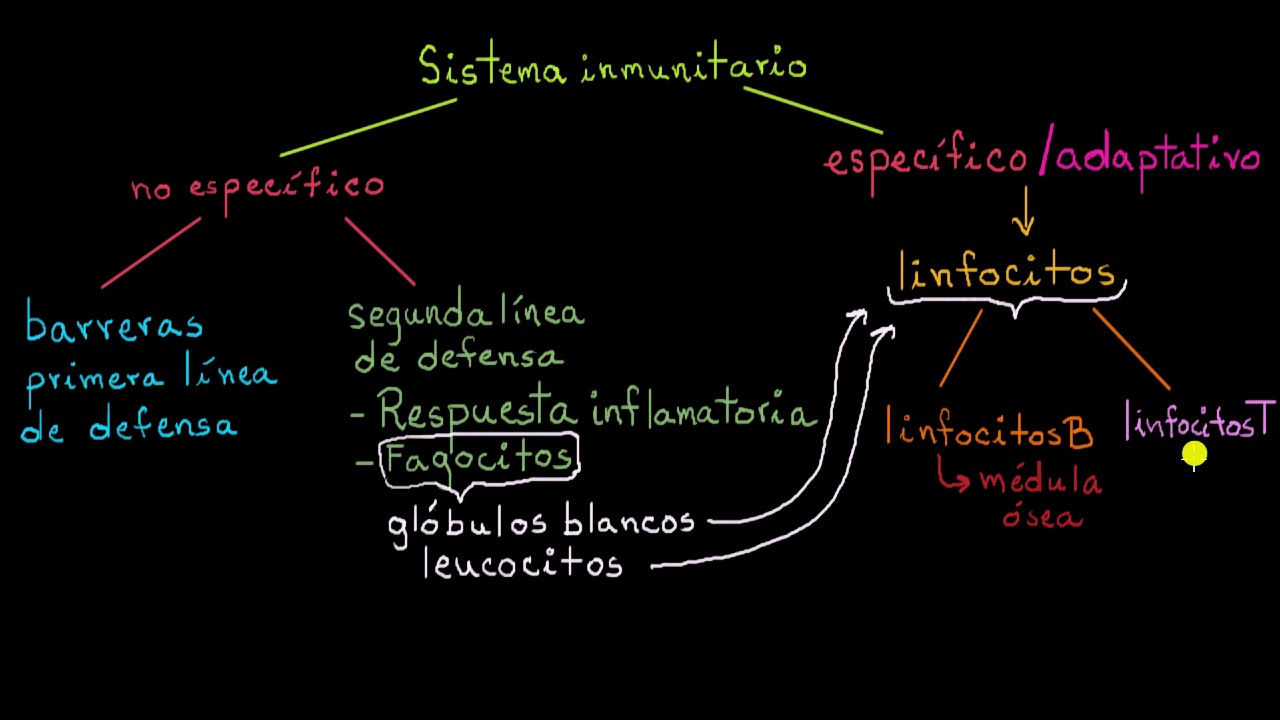 Sistema inmunitario
no específico
específico/adaptativo
barreras
primera línea
de defensa
segunda línea
de defensa
- Respuesta inflamatoria
- Fagocitos
glóbulos blancos
leucocitos
linfocitos
linfocitos B
médula
ósea
linfocitos T